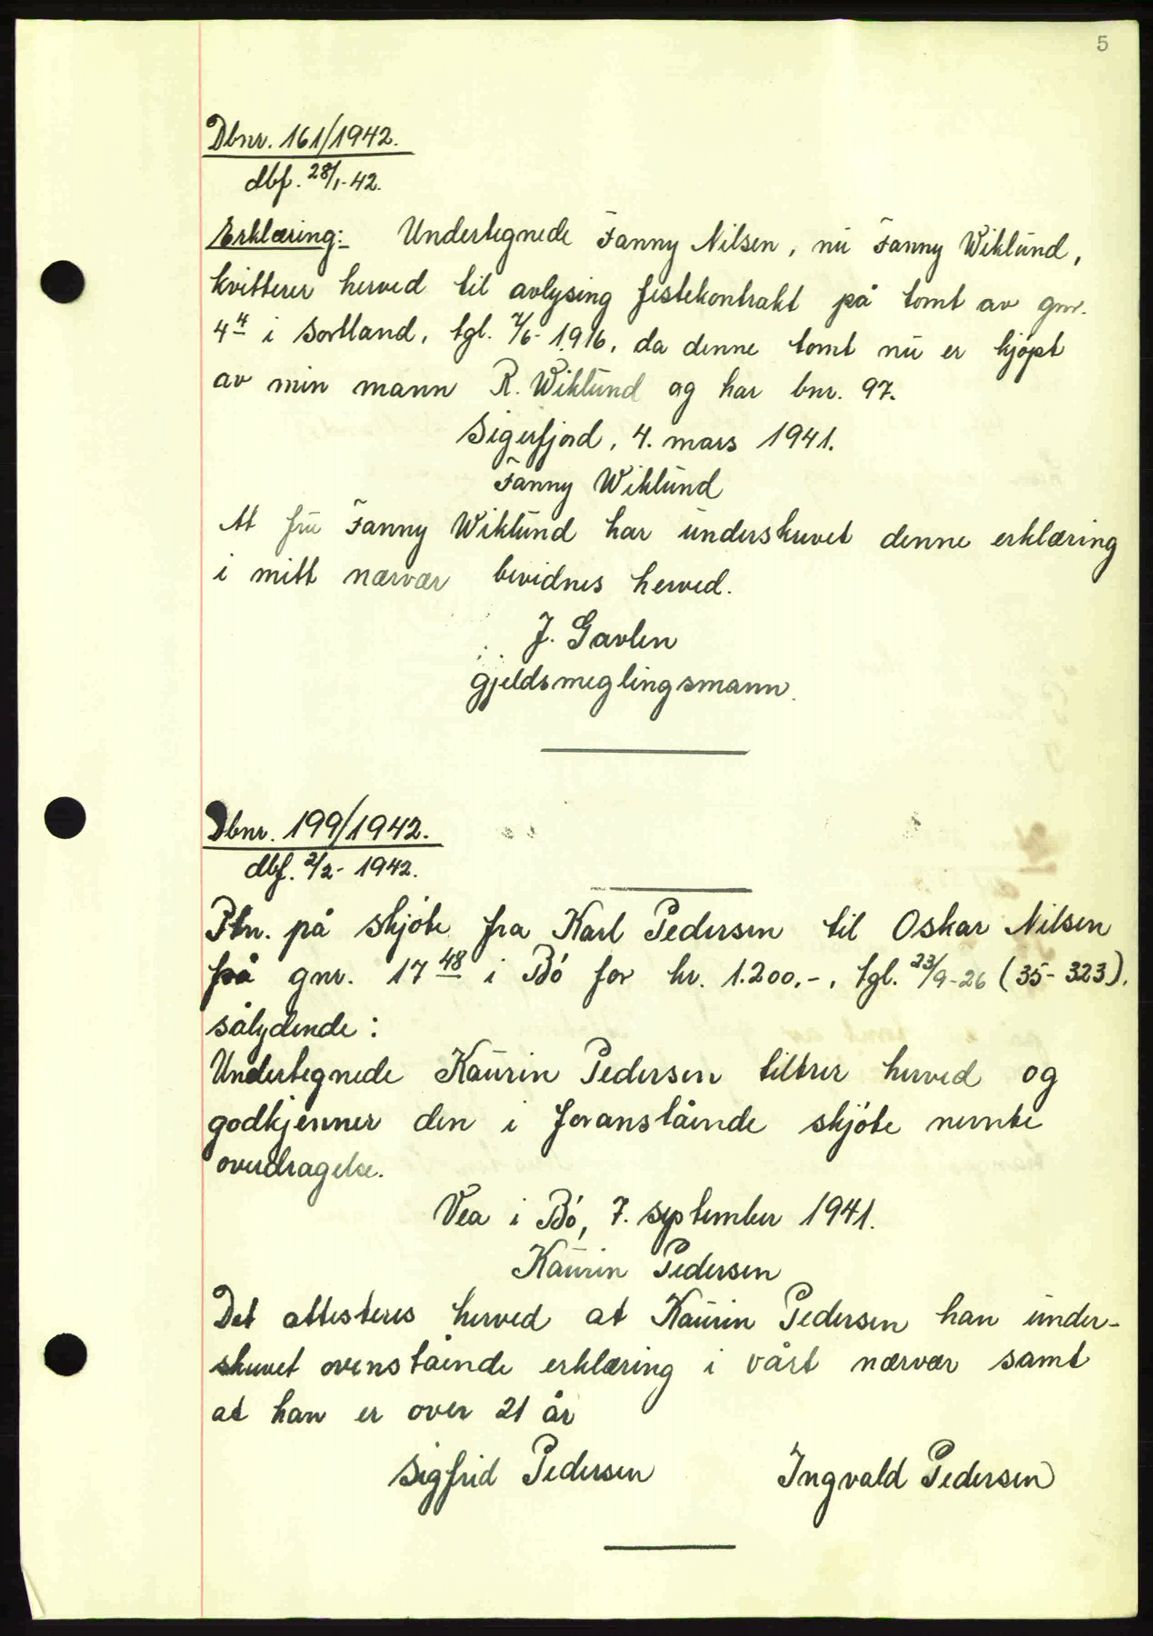 5
Dbnr. 161/1942.
dbf. 28/1-42.
Erklæring: Undertegnede Fanny Nilsen, nu Fanny Wiklund,
kvitterer herved til avlysing festekontrakt på tomt av gnr.
4 4 i Sortland, tgl. 7/6-1916, da denne tomt nu er kjøpt
av min mann R. Wiklund og har bnr. 97.
Sigerfjord, 4. mars 1941.
Fanny Wiklund
At fru Fanny Wiklund har underskrevet denne erklæring
i mitt nærvær bevidnes herved.
J. Gavlen
gjeldsmeglingsmann.
Dbnr. 199/1942.
dbf. 2/2-1942.
Ptn. på skjøte fra Karl Pedersen til Oskar Nilsen
på gnr. 17 48 i Bø for kr. 1.200.-, tgl. 23/9-26 (35-323),
sålydende:
Undertegnede Kaurin Pedersen tiltrer herved og
godkjenner den i foranstående skjøte nevnte
overdragelse.
Vea i Bø, 7. september 1941.
Kaurin Pedersen
Det attesteres herved at Kaurin Pedersen han under-
skrevet ovenstående erklæring i vårt nærvær samt
at han er over 21 år
Sigfrid Pedersen Ingvald Pedersen